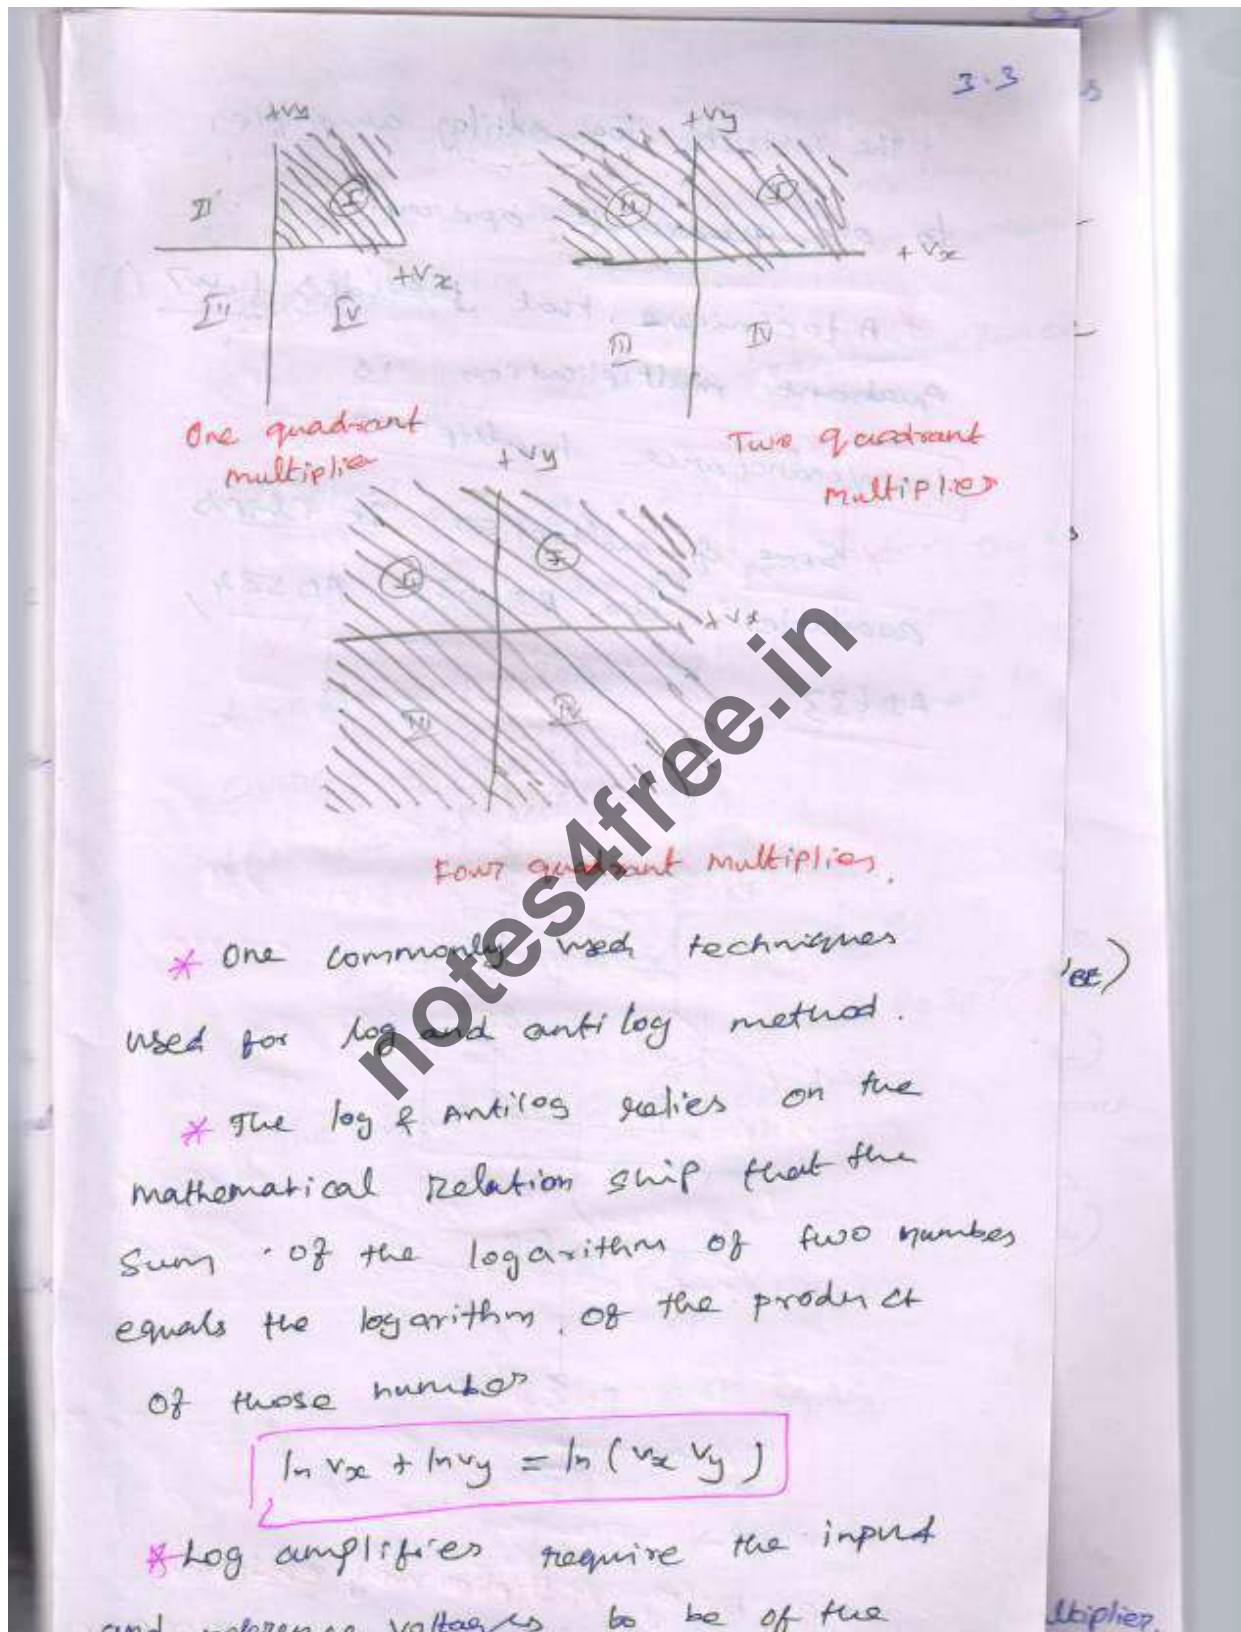 3.3
+Vy
II
I
+Vx
III
IV
One quadrant
multiplier
+Vy
II
I
+Vx
III
IV
Two quadrant
multiplier
+Vy
II
I
+Vx
III
IV
Four quadrant multiplier.
notes4free.in
* One commonly used techniques
used for log and antilog method.
* The log & Antilog relies on the
mathematical relation ship that the
Sum of the logarithm of two number
equals the logarithm of the product
of those number
ln Vx + ln Vy = ln (Vx Vy)
* Log amplifier require the input
and reference voltages to be of the
BE)
ltiplier.